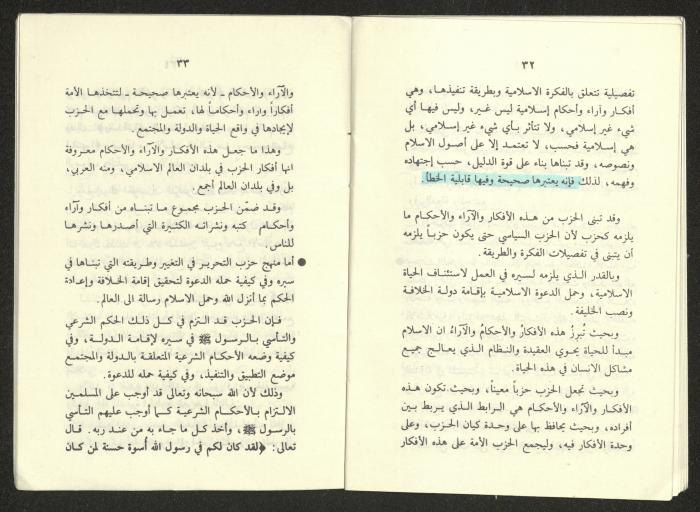 ٣٢
تفصيلية تتعلق بالفكرة الاسلامية وبطريقة تنفيذها، وهي
أفكار وآراء وأحكام إسلامية ليس غير، وليس فيها أي
شيء غير إسلامي، ولا تتأثر بأي شيء غير إسلامي، بل
هي إسلامية فحسب، لا تعتمد إلا على أصول الاسلام
ونصوصه، وقد تبناها بناء على قوة الدليل، حسب إجتهاده
وفهمه، لذلك فإنه يعتبرها صحيحة وفيها قابلية الخطأ.
وقد تبنى الحزب من هذه الأفكار والآراء والأحكام ما
يلزمه كحزب لأن الحزب السياسي حتى يكون حزباً يلزمه
أن يتبنى في تفصيلات الفكرة والطريقة.
وبالقدر الذي يلزمه لسيره في العمل لاستئناف الحياة
الاسلامية، وحمل الدعوة الاسلامية بإقامة دولة الخلافة
ونصب الخليفة.
وبحيث تُبرِزُ هذه الأفكارُ والأحكامُ والآراءُ ان الاسلام
مبدأ للحياة يحوي العقيدة والنظام الذي يعالج جميع
مشاكل الانسان في هذه الحياة.
وبحيث تجعل الحزب حزباً معيناً، وبحيث تكون هذه
الأفكار والآراء والأحكام هي الرابط الذي يربط بين
أفراده، وبحيث يحافظ بها على وحدة كيان الحزب، وعلى
وحدة الأفكار فيه، وليجمع الحزب الأمة على هذه الأفكار
٣٣
والآراء والأحكام ـ لأنه يعتبرها صحيحة ـ لتتخذها الأمة
أفكاراً واراء وأحكاماً لها، تعمل بها وتحملها مع الحزب
لإيجادها في واقع الحياة والدولة والمجتمع.
وهذا ما جعل هذه الأفكار والآراء والأحكام معروفة
انها أفكار الحزب في بلدان العالم الاسلامي، ومنه العربي،
بل وفي بلدان العالم أجمع.
وقد ضمّن الحزب مجموع ما تبناه من أفكار وآراء
وأحكام كتبه ونشراته الكثيرة التي أصدرها ونشرها
للناس.
● أما منهج حزب التحرير في التغيير وطريقته التي تبناها في
سيره وفي كيفية حمله الدعوة لتحقيق إقامة الخلافة وإعادة
الحكم بما أنزل الله وحمل الاسلام رسالة الى العالم.
فإن الحزب قد التزم في كل ذلك الحكم الشرعي
والتأسي بالرسول ﷺ في سيره لإقامة الدولة، وفي
كيفية وضعه الأحكام الشرعية المتعلقة بالدولة والمجتمع
موضع التطبيق والتنفيذ، وفي كيفية حمله للدعوة.
وذلك لأن الله سبحانه وتعالى قد أوجب على المسلمين
الالتزام بالأحكام الشرعية كما أوجب عليهم التأسي
بالرسول ﷺ، وأخذ كل ما جاء به من عند ربه. قال
تعالى: ﴿لقد كان لكم في رسول الله أُسوة حسنة لمن كان